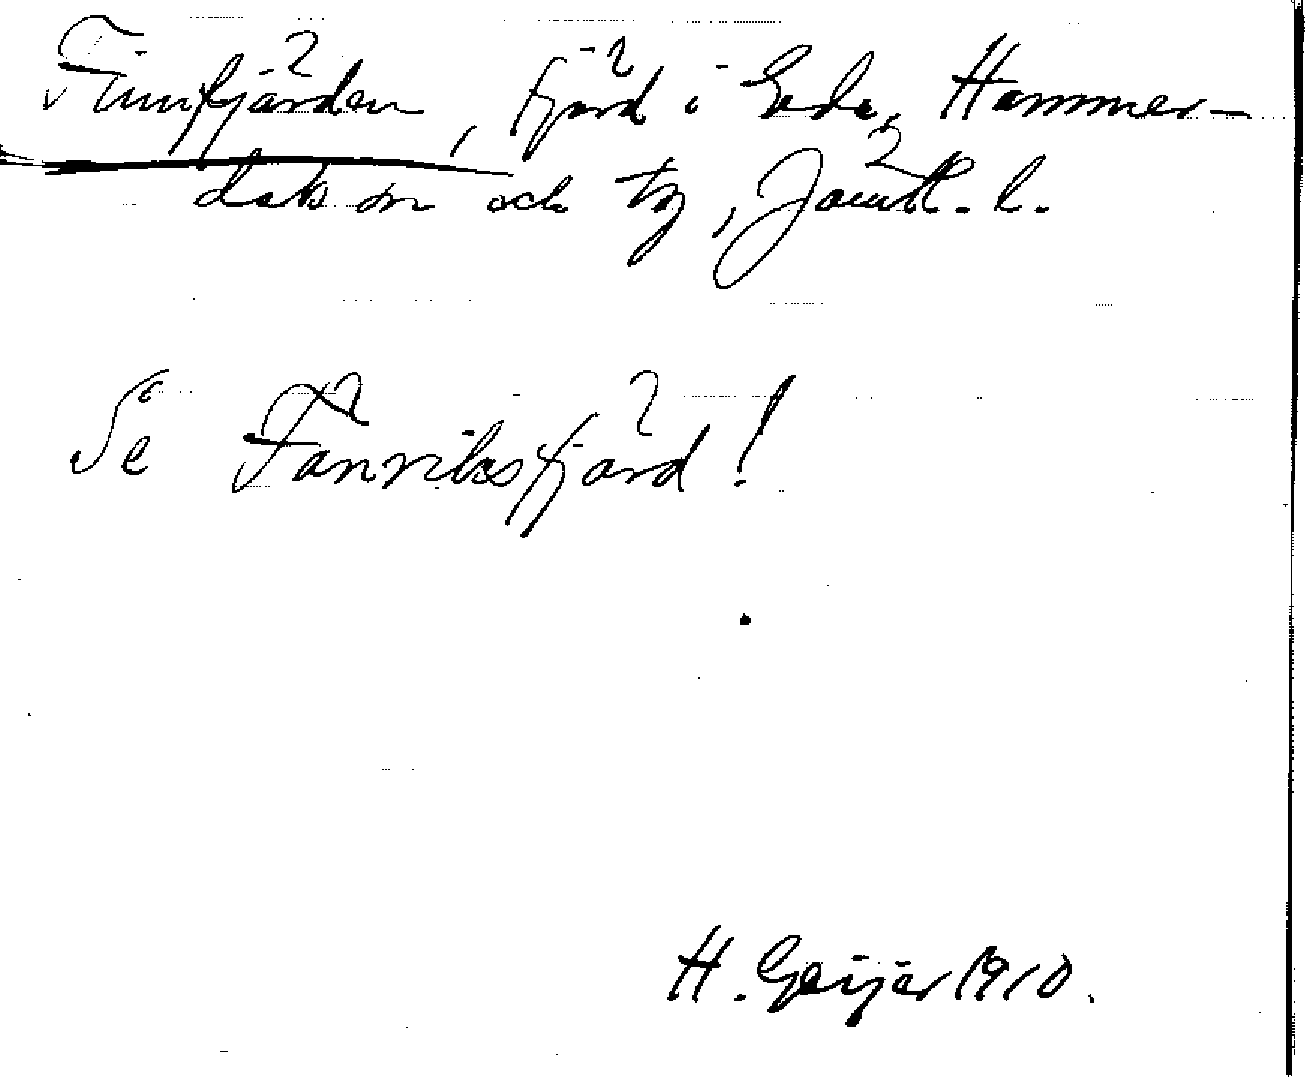 Finnfjärden, fjärd i Gåde, Hammer-
dals sn och tg, Jämtl. l.
Se Fänriksfjärd!
H. Geijer 1910.